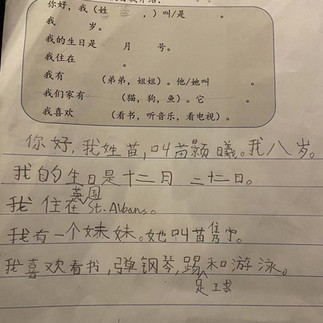 你好，我（姓　　，）叫/是　　。
我　　岁。
我的生日是　　月　　号。
我住在　　。
我有　　（弟弟，姐姐）。他/她叫　　。
我们家有　　（猫，狗，鱼）。它　　。
我喜欢　　（看书，听音乐，看电视）。
你好，我姓苗，叫苗颢曦。我八岁。
我的生日是十二月 二十二日。
英国
我 住在 St. Albans。
我有一个妹妹。她叫苗隽。
我喜欢看书，弹钢琴，踢和游泳。
足